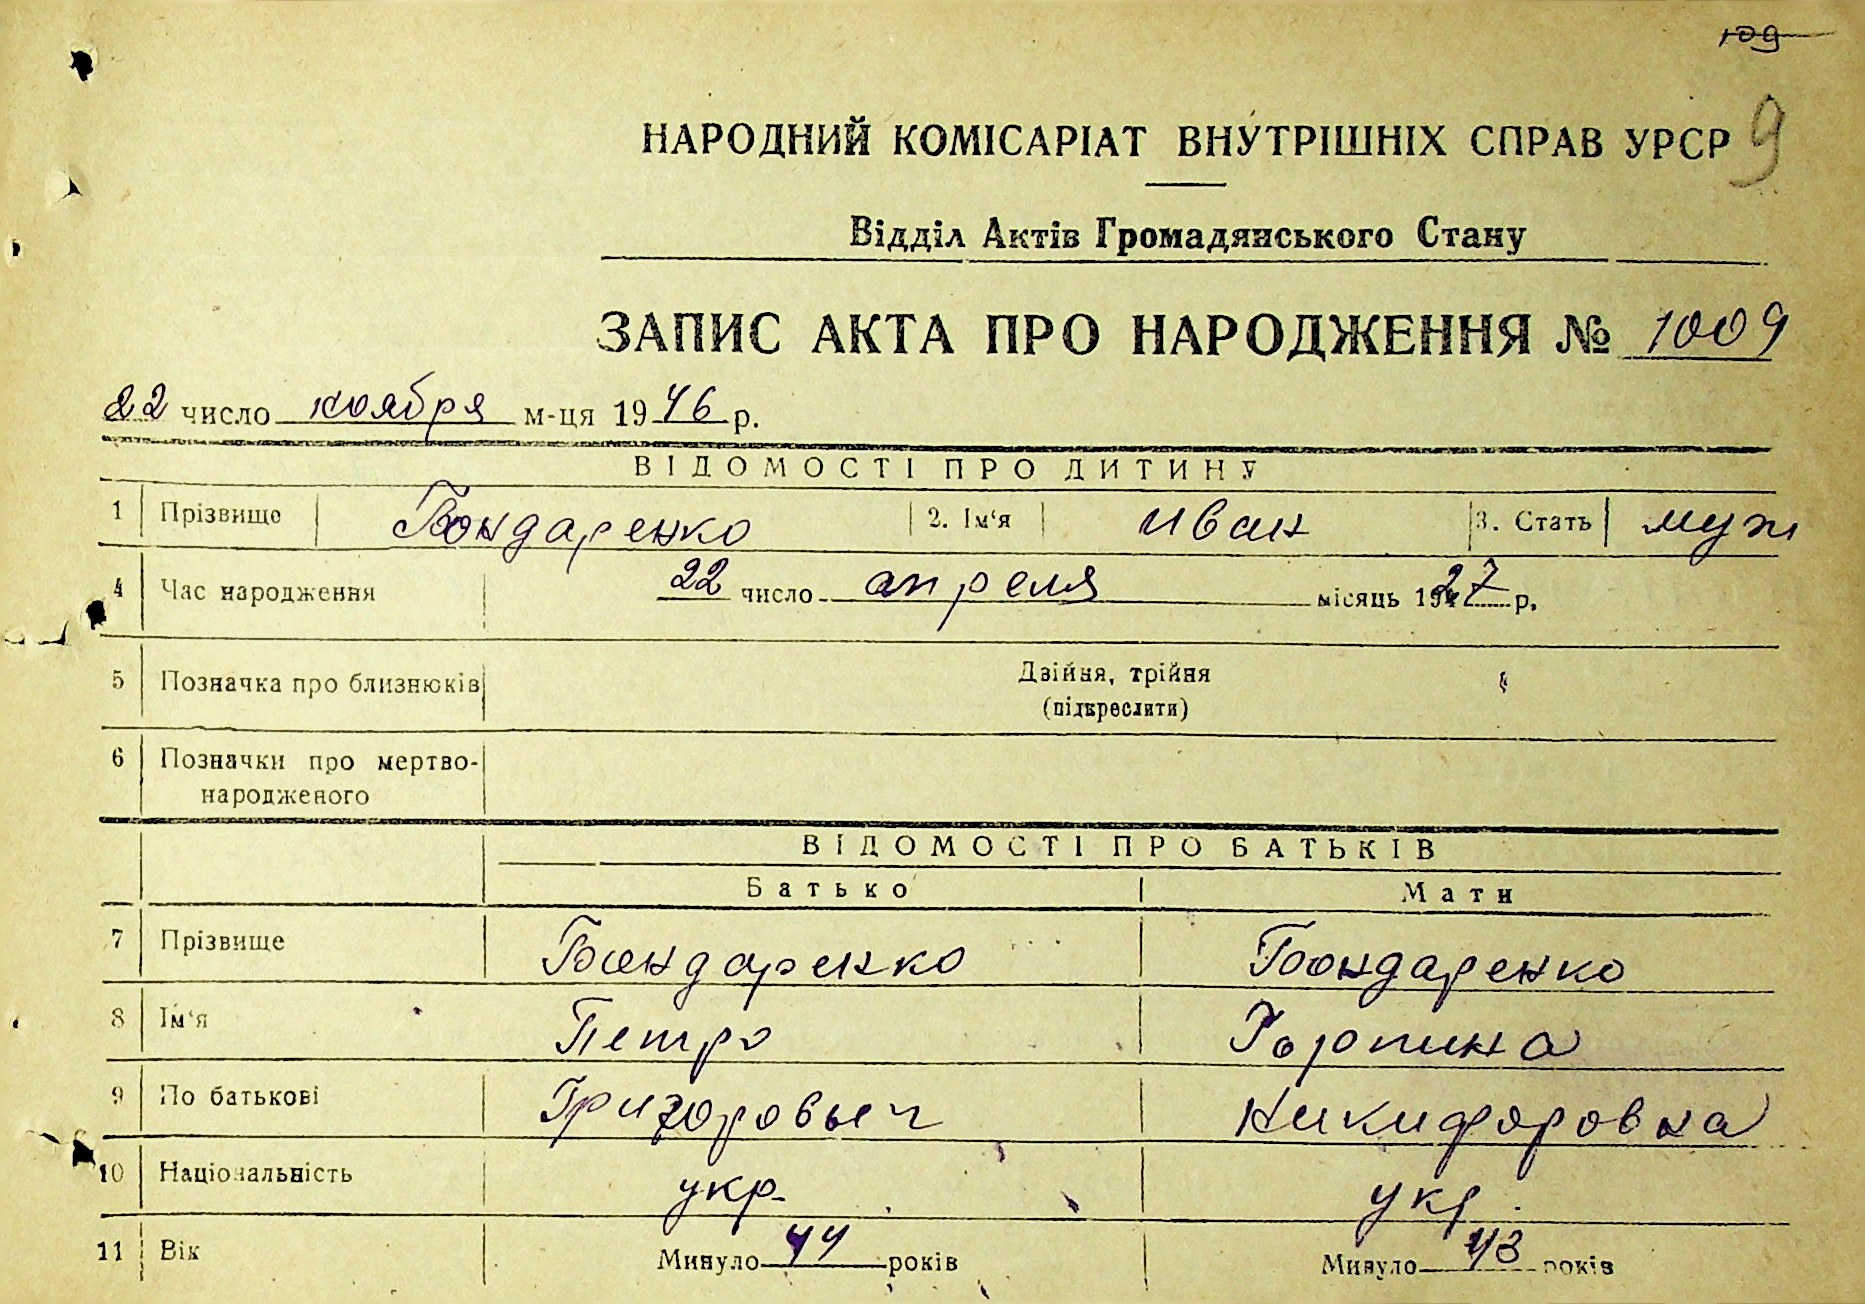 109
НАРОДНИЙ КОМІСАРІАТ ВНУТРІШНІХ СПРАВ УРСР 9
Відділ Актів Громадянського Стану
ЗАПИС АКТА ПРО НАРОДЖЕННЯ № 1009
22 число ноября м-ця 1946 р.
ВІДОМОСТІ ПРО ДИТИНУ
1 Прізвище Бондаренко 2. Ім'я Иван 3. Стать муж
4 Час народження 22 число апреля місяць 1927 р.
5 Позначка про близнюків Двійня, трійня
(підкреслити)
6 Позначки про мертво-
народженого
ВІДОМОСТІ ПРО БАТЬКІВ
Батько Мати
7 Прізвище Бондаренко Бондаренко
8 Ім'я Петро Горпина
9 По батькові Григоровыч Никифоровна
10 Національність укр. укр.
11 Вік Минуло 44 років Минуло 43 років